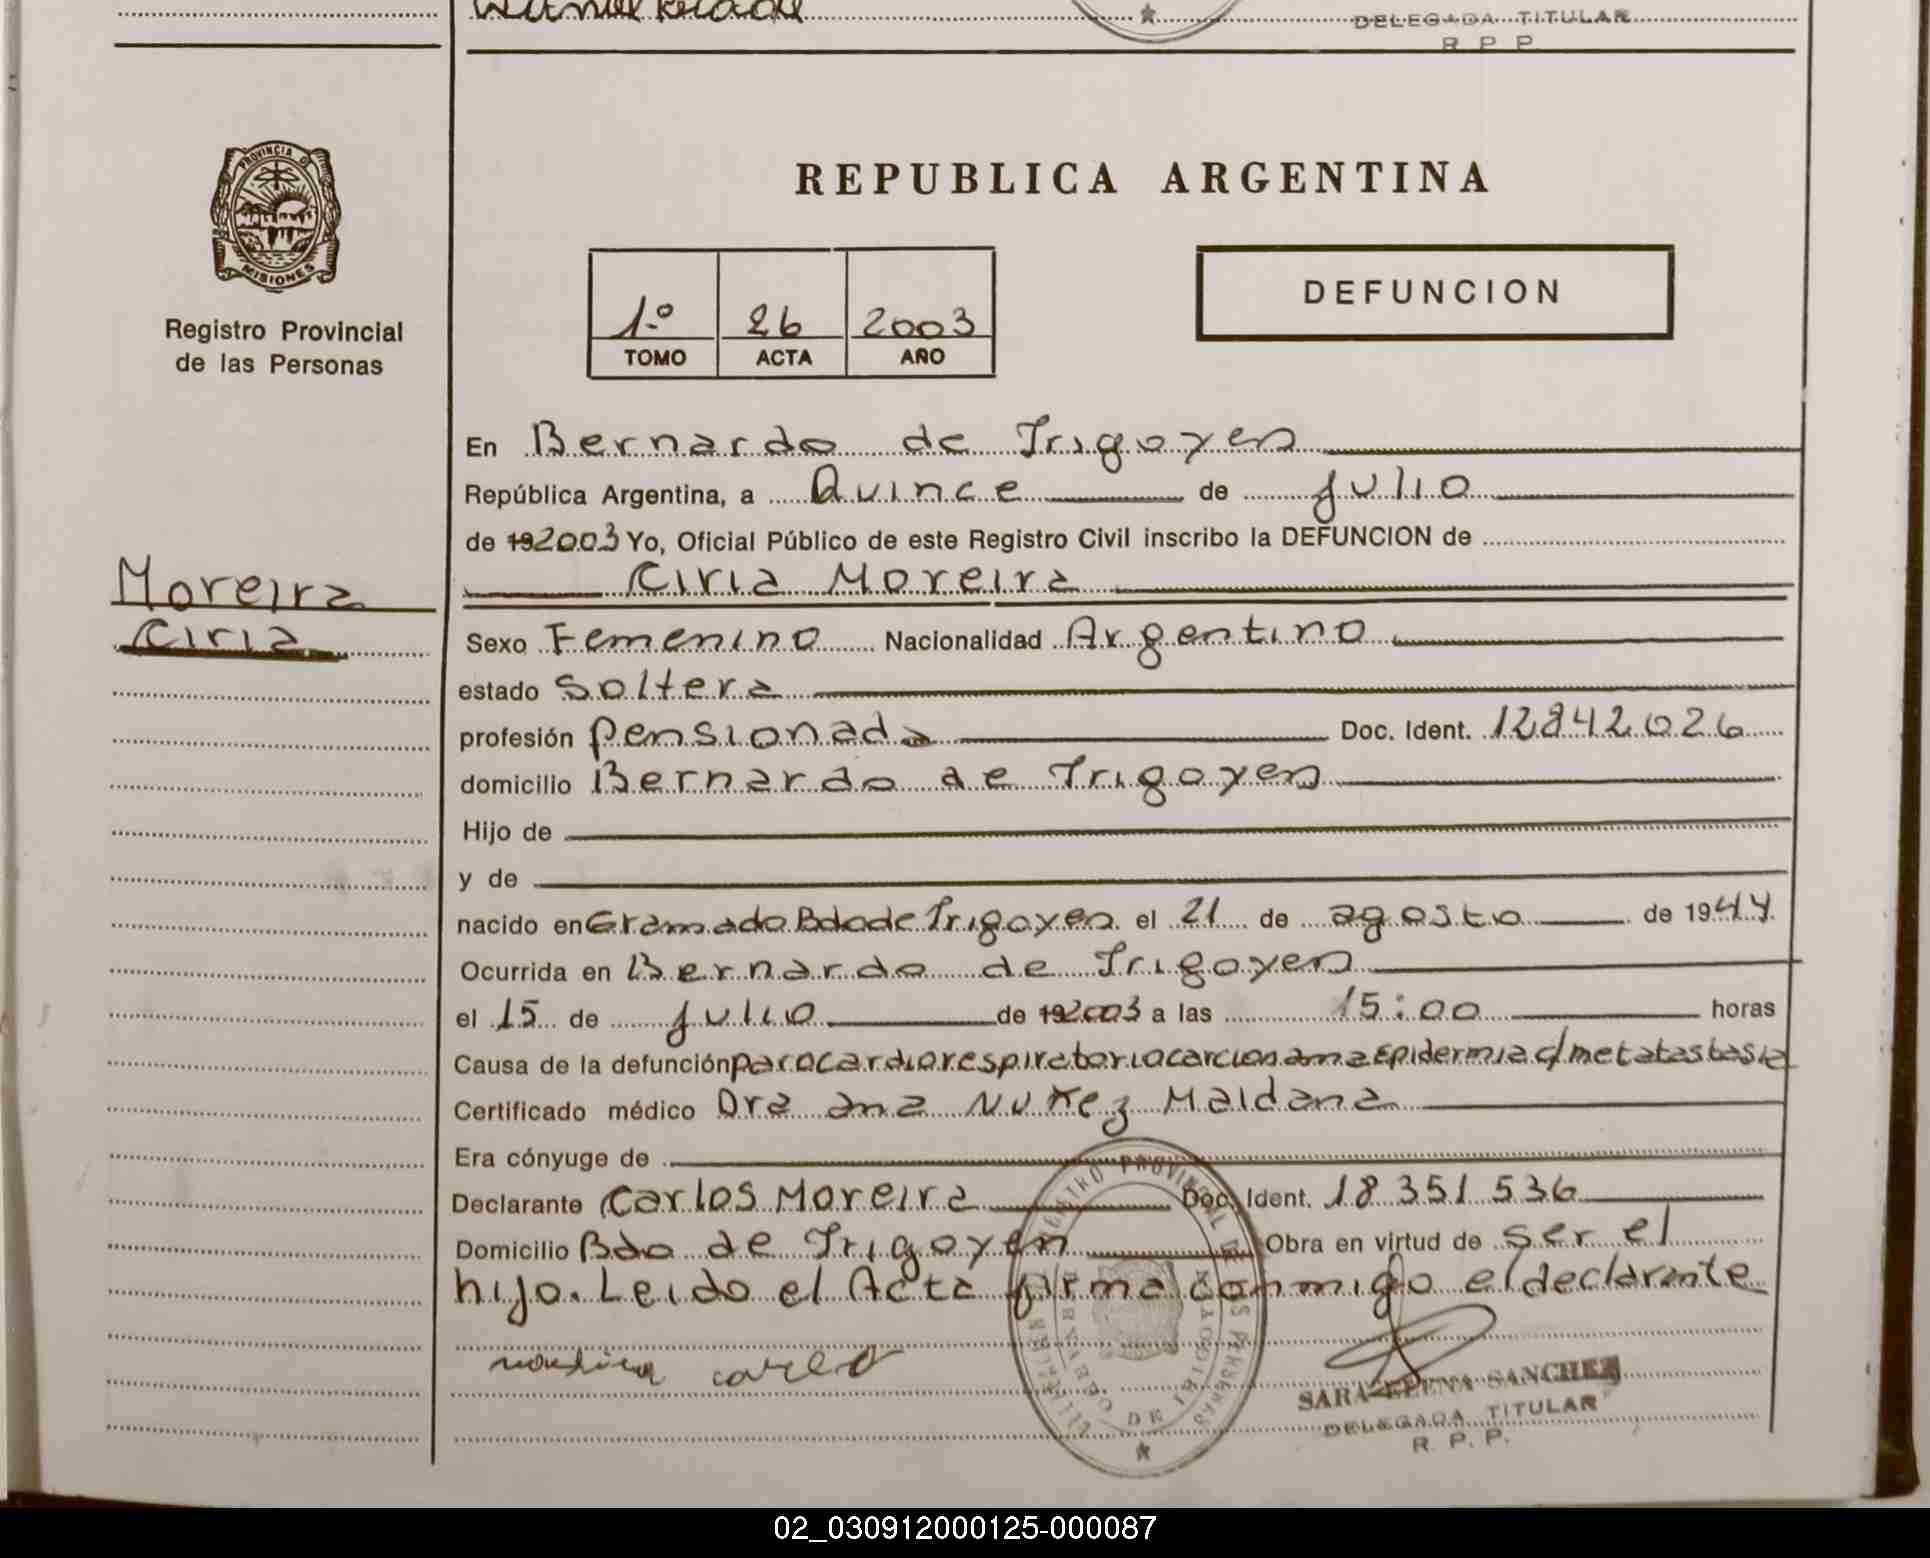 DELEGADA TITULAR
R P P
PROVINCIA D
MISIONES
Registro Provincial
de las Personas
REPUBLICA ARGENTINA
1.º 26 2003
TOMO ACTA AÑO
DEFUNCION
En Bernardo de Irigoyen
República Argentina, a Quince de julio
de 192003 Yo, Oficial Público de este Registro Civil inscribo la DEFUNCION de
Moreira
Ciria
Ciria Moreira
Sexo Femenino Nacionalidad Argentino
estado Soltera
profesión pensionada Doc. Ident. 12842026
domicilio Bernardo de Irigoyen
Hijo de
y de
nacido en Gramado Bdo de Irigoyen el 21 de agosto de 1944
Ocurrida en Bernardo de Irigoyen
el 15 de julio de 192003 a las 15:00 horas
Causa de la defunción paro cardiorespiratorio Epidermia c/ metatastasia
Certificado médico Dra ana Nuñez Maldana
Era cónyuge de
Declarante Carlos Moreira Doc. Ident. 18 351 536
Domicilio Bdo de Irigoyen Obra en virtud de ser el
hijo. Leido el Acta firma conmigo el declarante
SARA ELENA SANCHEZ
DELEGADA TITULAR
R. P. P.
REGISTRO PROVINCIAL DE LAS PERSONAS
BERNARDO DE IRIGOYEN
02_030912000125-000087